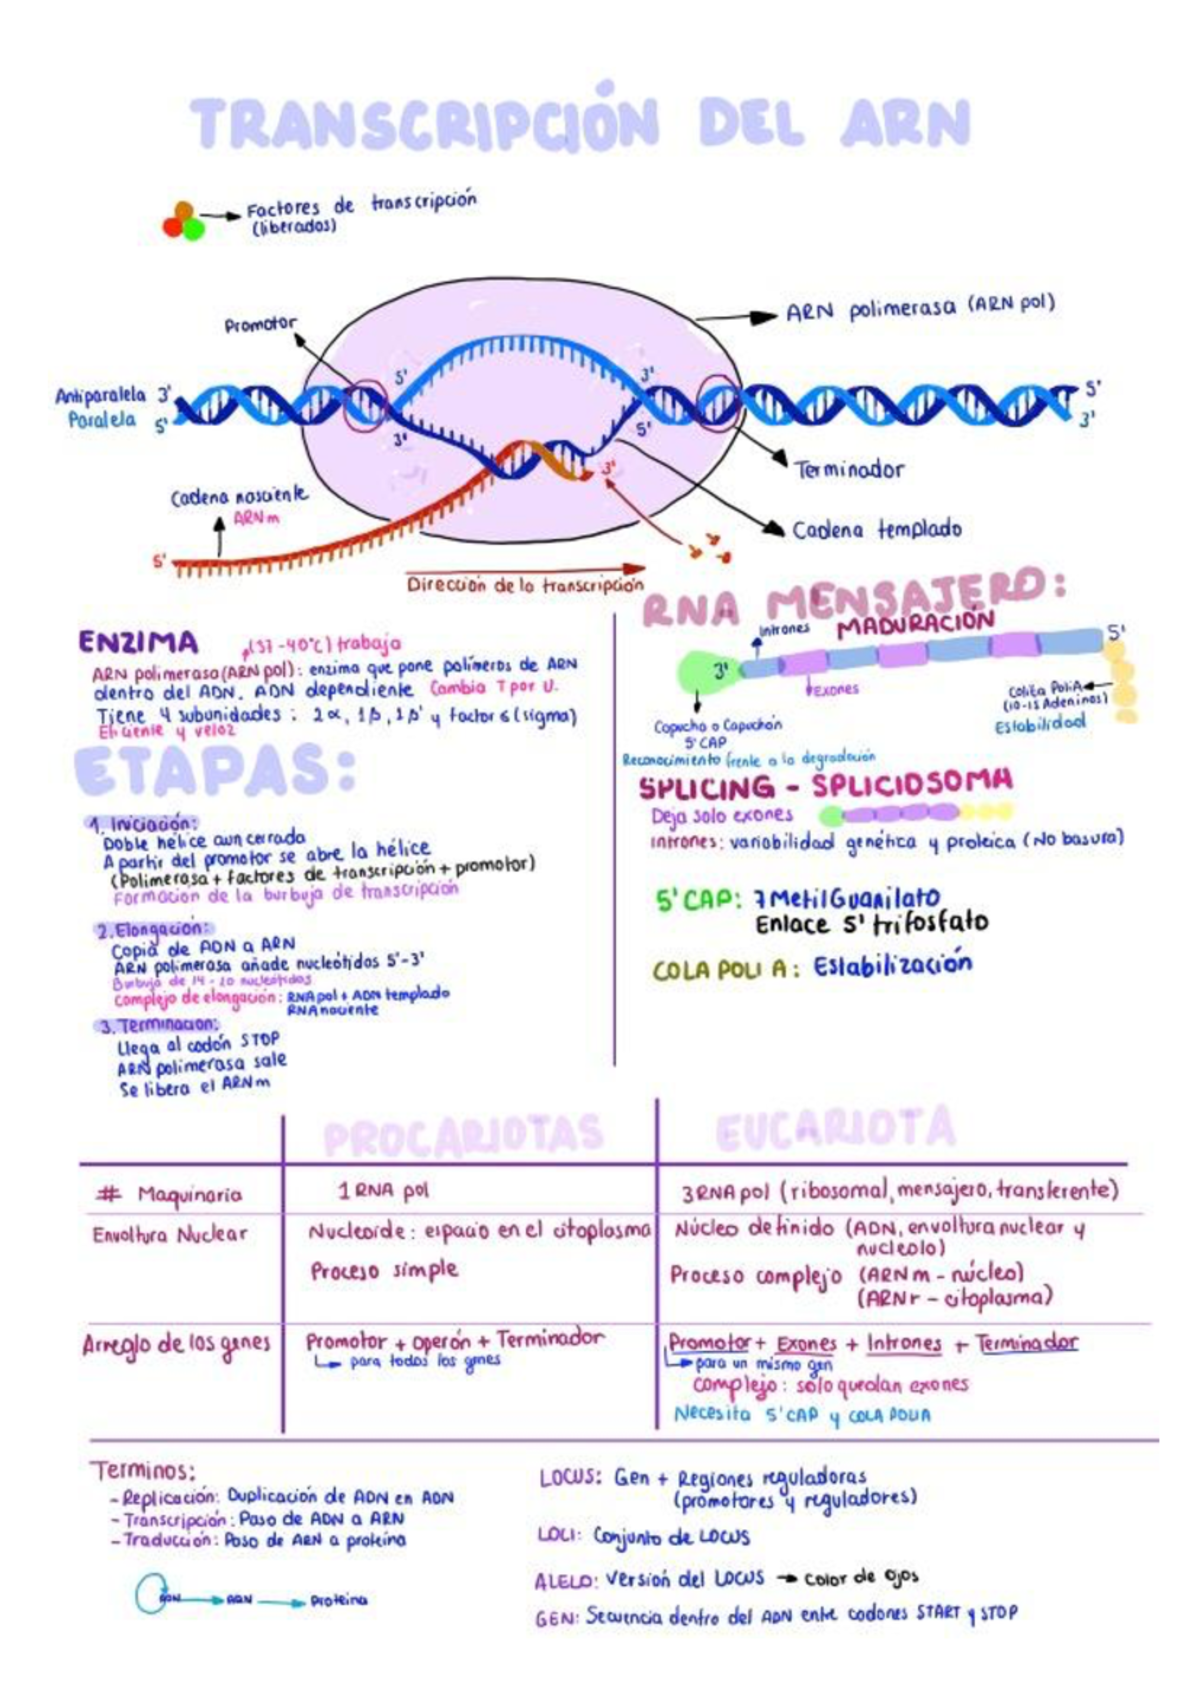 TRANSCRIPCIÓN DEL ARN
Factores de transcripción
(liberados)
Promotor
ARN polimerasa (ARN pol)
Antiparalela 3'
Paralela 5'
5'
3'
3'
5'
5'
3'
3'
Terminador
Cadena templado
Cadena nasciente
ARNm
5'
Dirección de la transcripción
ENZIMA
(37-40°C) trabaja
ARN polimerasa (ARN pol): enzima que pone polímeros de ARN
dentro del ADN. ADN dependiente Cambia T por U.
Tiene 4 subunidades: 2α, 1β, 1β' y factor 6 (sigma)
Eficiente y veloz
ETAPAS:
1. Iniciación:
Doble hélice aun cerrada
A partir del promotor se abre la hélice
(Polimerasa + factores de transcripción + promotor)
Formación de la burbuja de transcripción
2. Elongación:
Copia de ADN a ARN
ARN polimerasa añade nucleótidos 5'-3'
Burbuja de 14-20 nucleótidos
Complejo de elongación: RNA pol + ADN templado
RNA naciente
3. Terminacion:
Llega al codón STOP
ARN polimerasa sale
Se libera el ARNm
RNA MENSAJERO:
MADURACIÓN
Intrones
3'
5'
Exones
Caperuza o Capuchón
5' CAP
Reconocimiento frente a la degradación
Colita Poli A
(10-15 Adeninas)
Estabilidad
SPLICING - SPLICIOSOMA
Deja solo exones
Intrones: variabilidad genética y proteica (No basura)
5' CAP: 7 Metil Guanilato
Enlace 5' trifosfato
COLA POLI A: Estabilización
PROCARIOTAS
EUCARIOTA
# Maquinaria
1 RNA pol
3 RNA pol (ribosomal, mensajero, transferente)
Envoltura Nuclear
Nucleoide: espacio en el citoplasma
Proceso simple
Núcleo definido (ADN, envoltura nuclear y
nucleolo)
Proceso complejo (ARNm - núcleo)
(ARNr - citoplasma)
Arreglo de los genes
Promotor + operón + Terminador
para todos los genes
Promotor + Exones + Intrones + Terminador
para un mismo gen
Complejo: solo quedan exones
Necesita 5' CAP y COLA POLIA
Terminos:
- Replicación: Duplicación de ADN en ADN
- Transcripción: Paso de ADN a ARN
- Traducción: Paso de ARN a proteína
ADN → ARN → Proteina
LOCUS: Gen + Regiones reguladoras
(promotores y reguladores)
LOCI: Conjunto de LOCUS
ALELO: Versión del LOCUS → Color de ojos
GEN: Secuencia dentro del ADN entre codones START y STOP